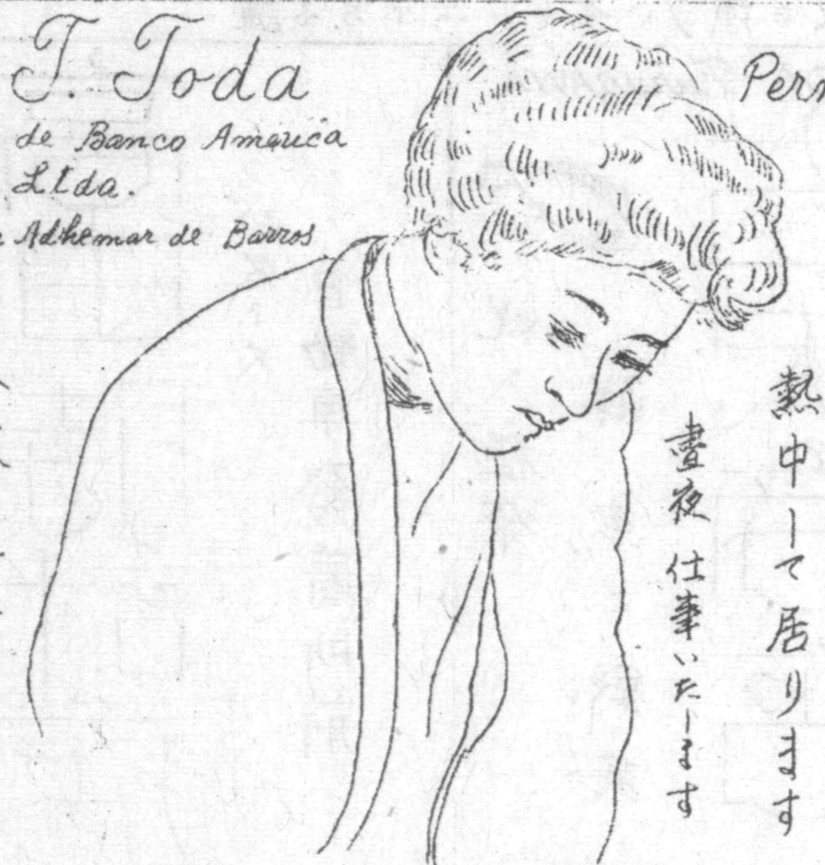 T. Toda
de Banco America
Ltda.
Adhemar de Barros
熱中して居ります
晝夜 仕事いたします